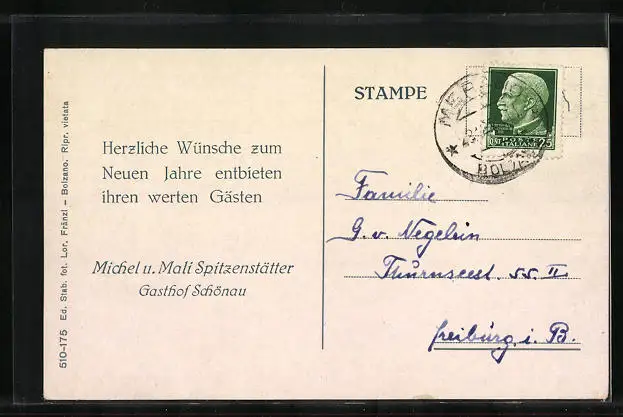 510-175 Ed. Stab. fot. Lor. Fränzl – Bolzano. Ripr. vietata
Herzliche Wünsche zum
Neuen Jahre entbieten
ihren werten Gästen
Michel u. Mali Spitzenstätter
Gasthof Schönau
STAMPE
25
ITALIANE
Familie
G. v. Negelein
Thurnseest. 55 II
Freiburg i. B.